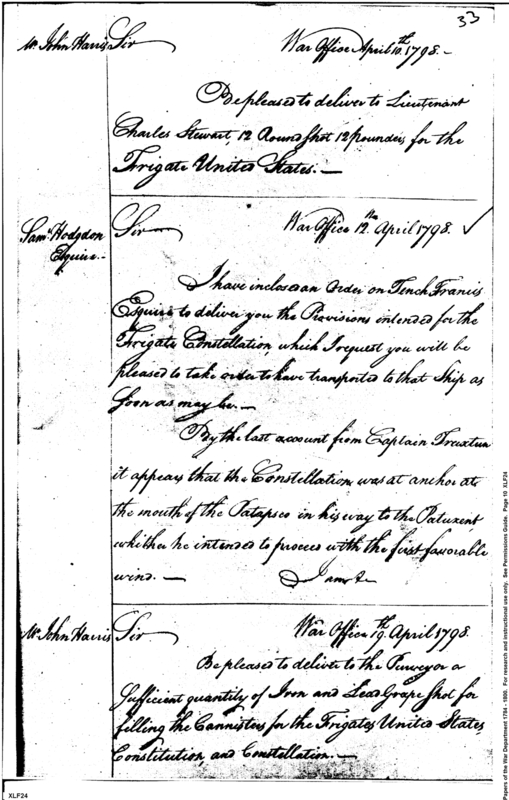 33
Mr. John Harris
Sir
War Office April 10th. 1798.
Be pleased to deliver to Lieutenant
Charles Stewart, 12 Round Shot 12 pounders, for the
Frigate United States.
Saml. Hodgdon
Esquire
Sir
War Office 12th April 1798.
I have inclosed an Order on Tench Francis
Esquire to deliver you the Provisions intended for the
Frigate Constellation, which I request you will be
pleased to take order to have transported to that Ship as
soon as may be.
By the last account from Captain Truxtun
it appears that the Constellation was at anchor at
the mouth of the Patapsco in his way to the Patuxent
whither he intended to proceed with the first favorable
wind.
I am &
Mr. John Harris
Sir
War Office 19th. April 1798.
Be pleased to deliver to the Purveyor a
Sufficient quantity of Iron and Lead Grape Shot for
filling the Cannisters for the Frigates United States,
Constitution, and Constellation.
XLF24
Papers of the War Department 1784 - 1800. For research and instructional use only. See Permissions Guide. Page 10 XLF24